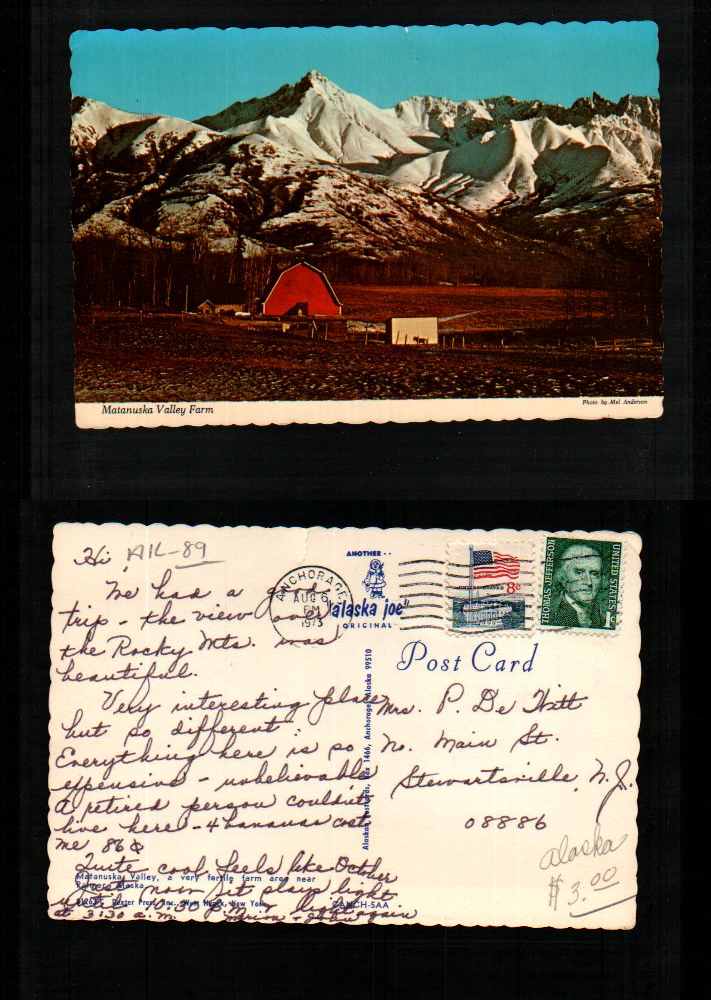 Matanuska Valley Farm
Photo by Mel Anderson
Hi, AK-89
We had a good
trip - the view over
the Rocky Mts. was
beautiful.
Very interesting place
but so different.
Everything here is so
expensive - unbelievable
A retired person couldn't
live here - 4 bananas cost
me 86¢
Quite cool, feels like October
noon. It stays light
until 10:30 P.M. & light again
at 3:30 a.m.
Matanuska Valley, a very fertile farm area near
Palmer, Alaska
Dexter Press, Inc., West Nyack, New York
ANCHORAGE
AUG 6
PM
1973
ANOTHER - -
"alaska joe"
ORIGINAL
8c
THOMAS JEFFERSON
UNITED STATES
1c
Post Card
Alaska Postcards, Box 1466, Anchorage, Alaska 99510
Mrs. P. De Witt
No. Main St.
Stewartsville, N.J.
08886
alaska
$3.00